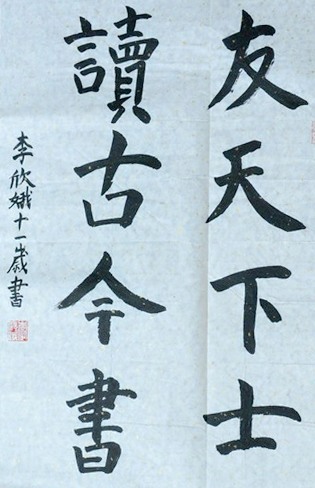 友天下士
讀古今書
李欣娥十一歲書